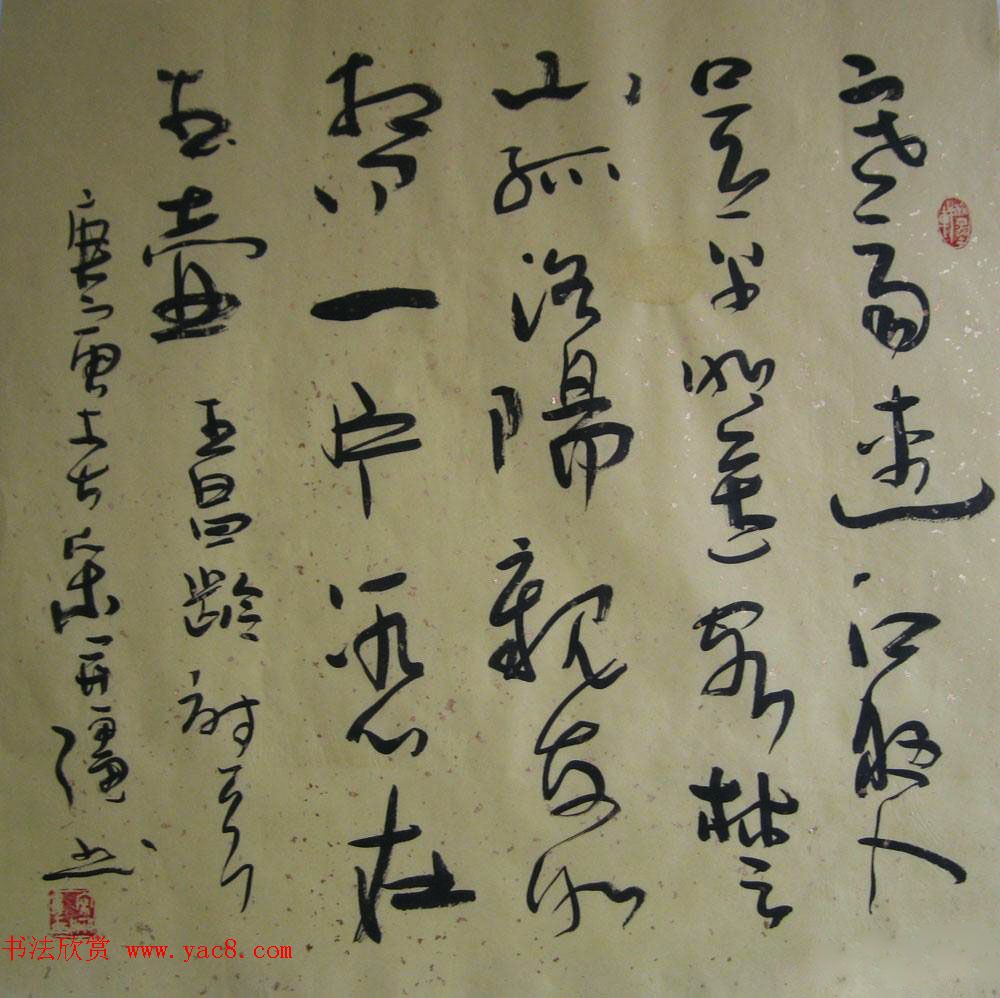 寒雨連江夜入
吳平明送客楚
山孤洛陽親友如
相問一片冰心在
玉壺 王昌齡詩一首
庚寅
书法欣赏 www.yac8.com